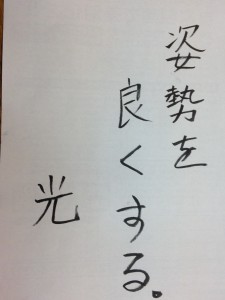 姿勢を
良くする。
光